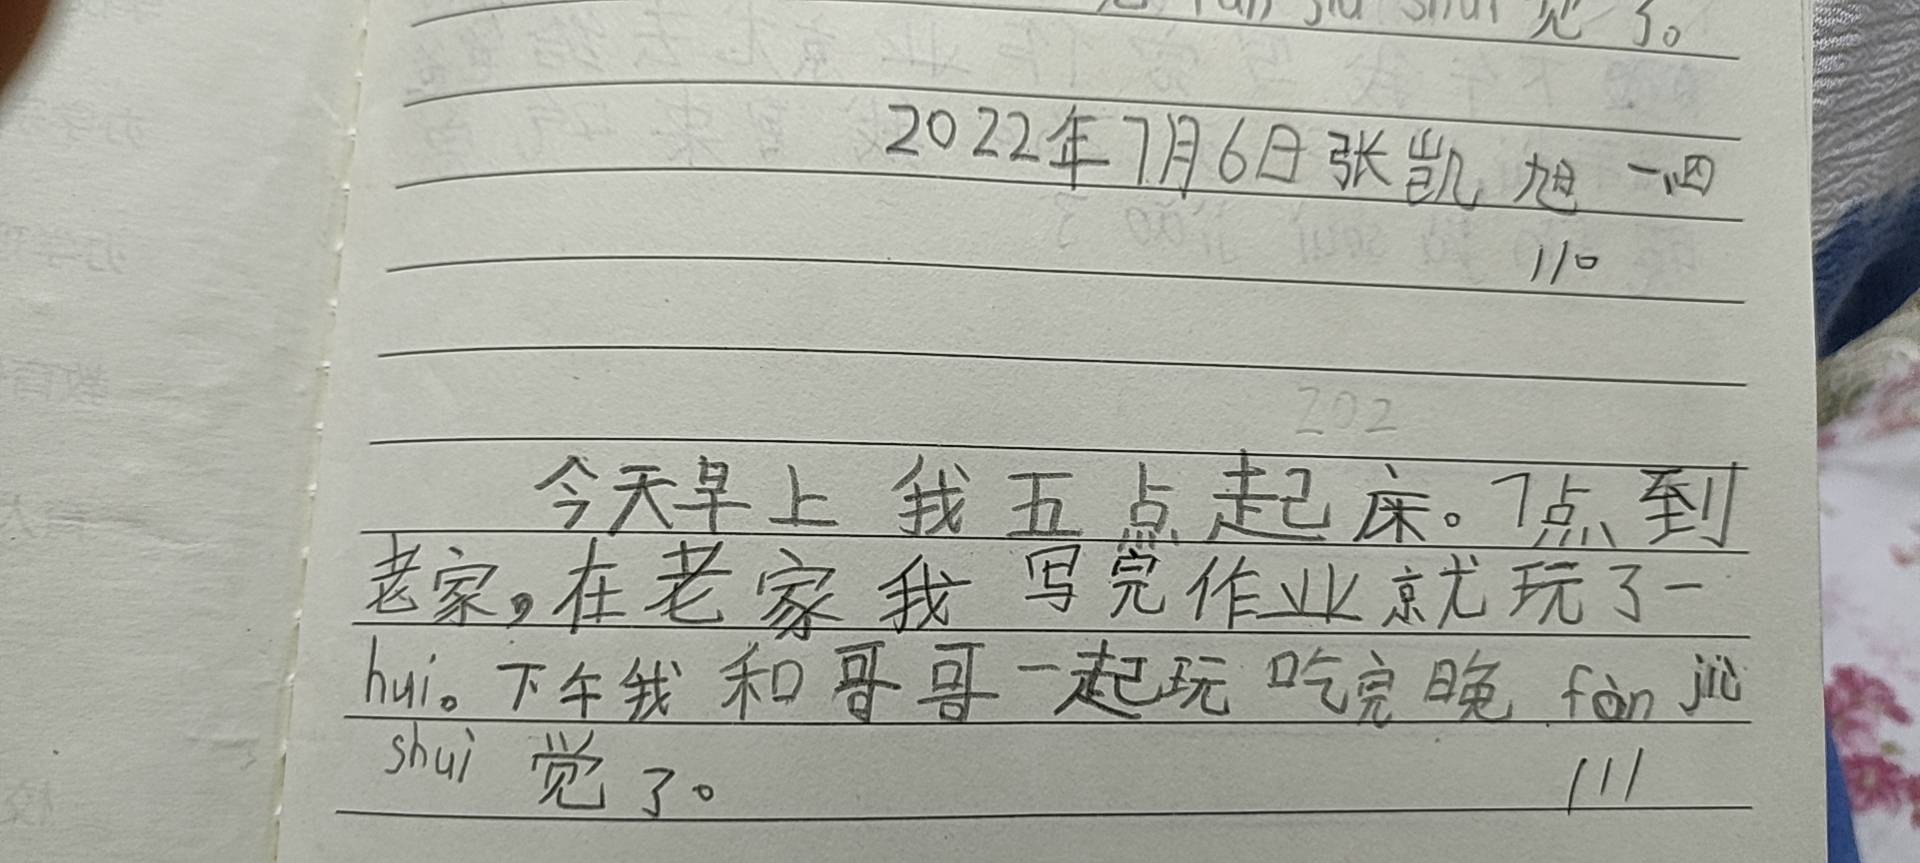 fàn jiù shuì 觉了。
2022年7月6日张凯旭一.四
110
202
今天早上我五点起床。7点到
老家,在老家我写完作业就玩了一
hui。下午我和哥哥一起玩吃完晚 fàn jiù
shuì 觉了。
111